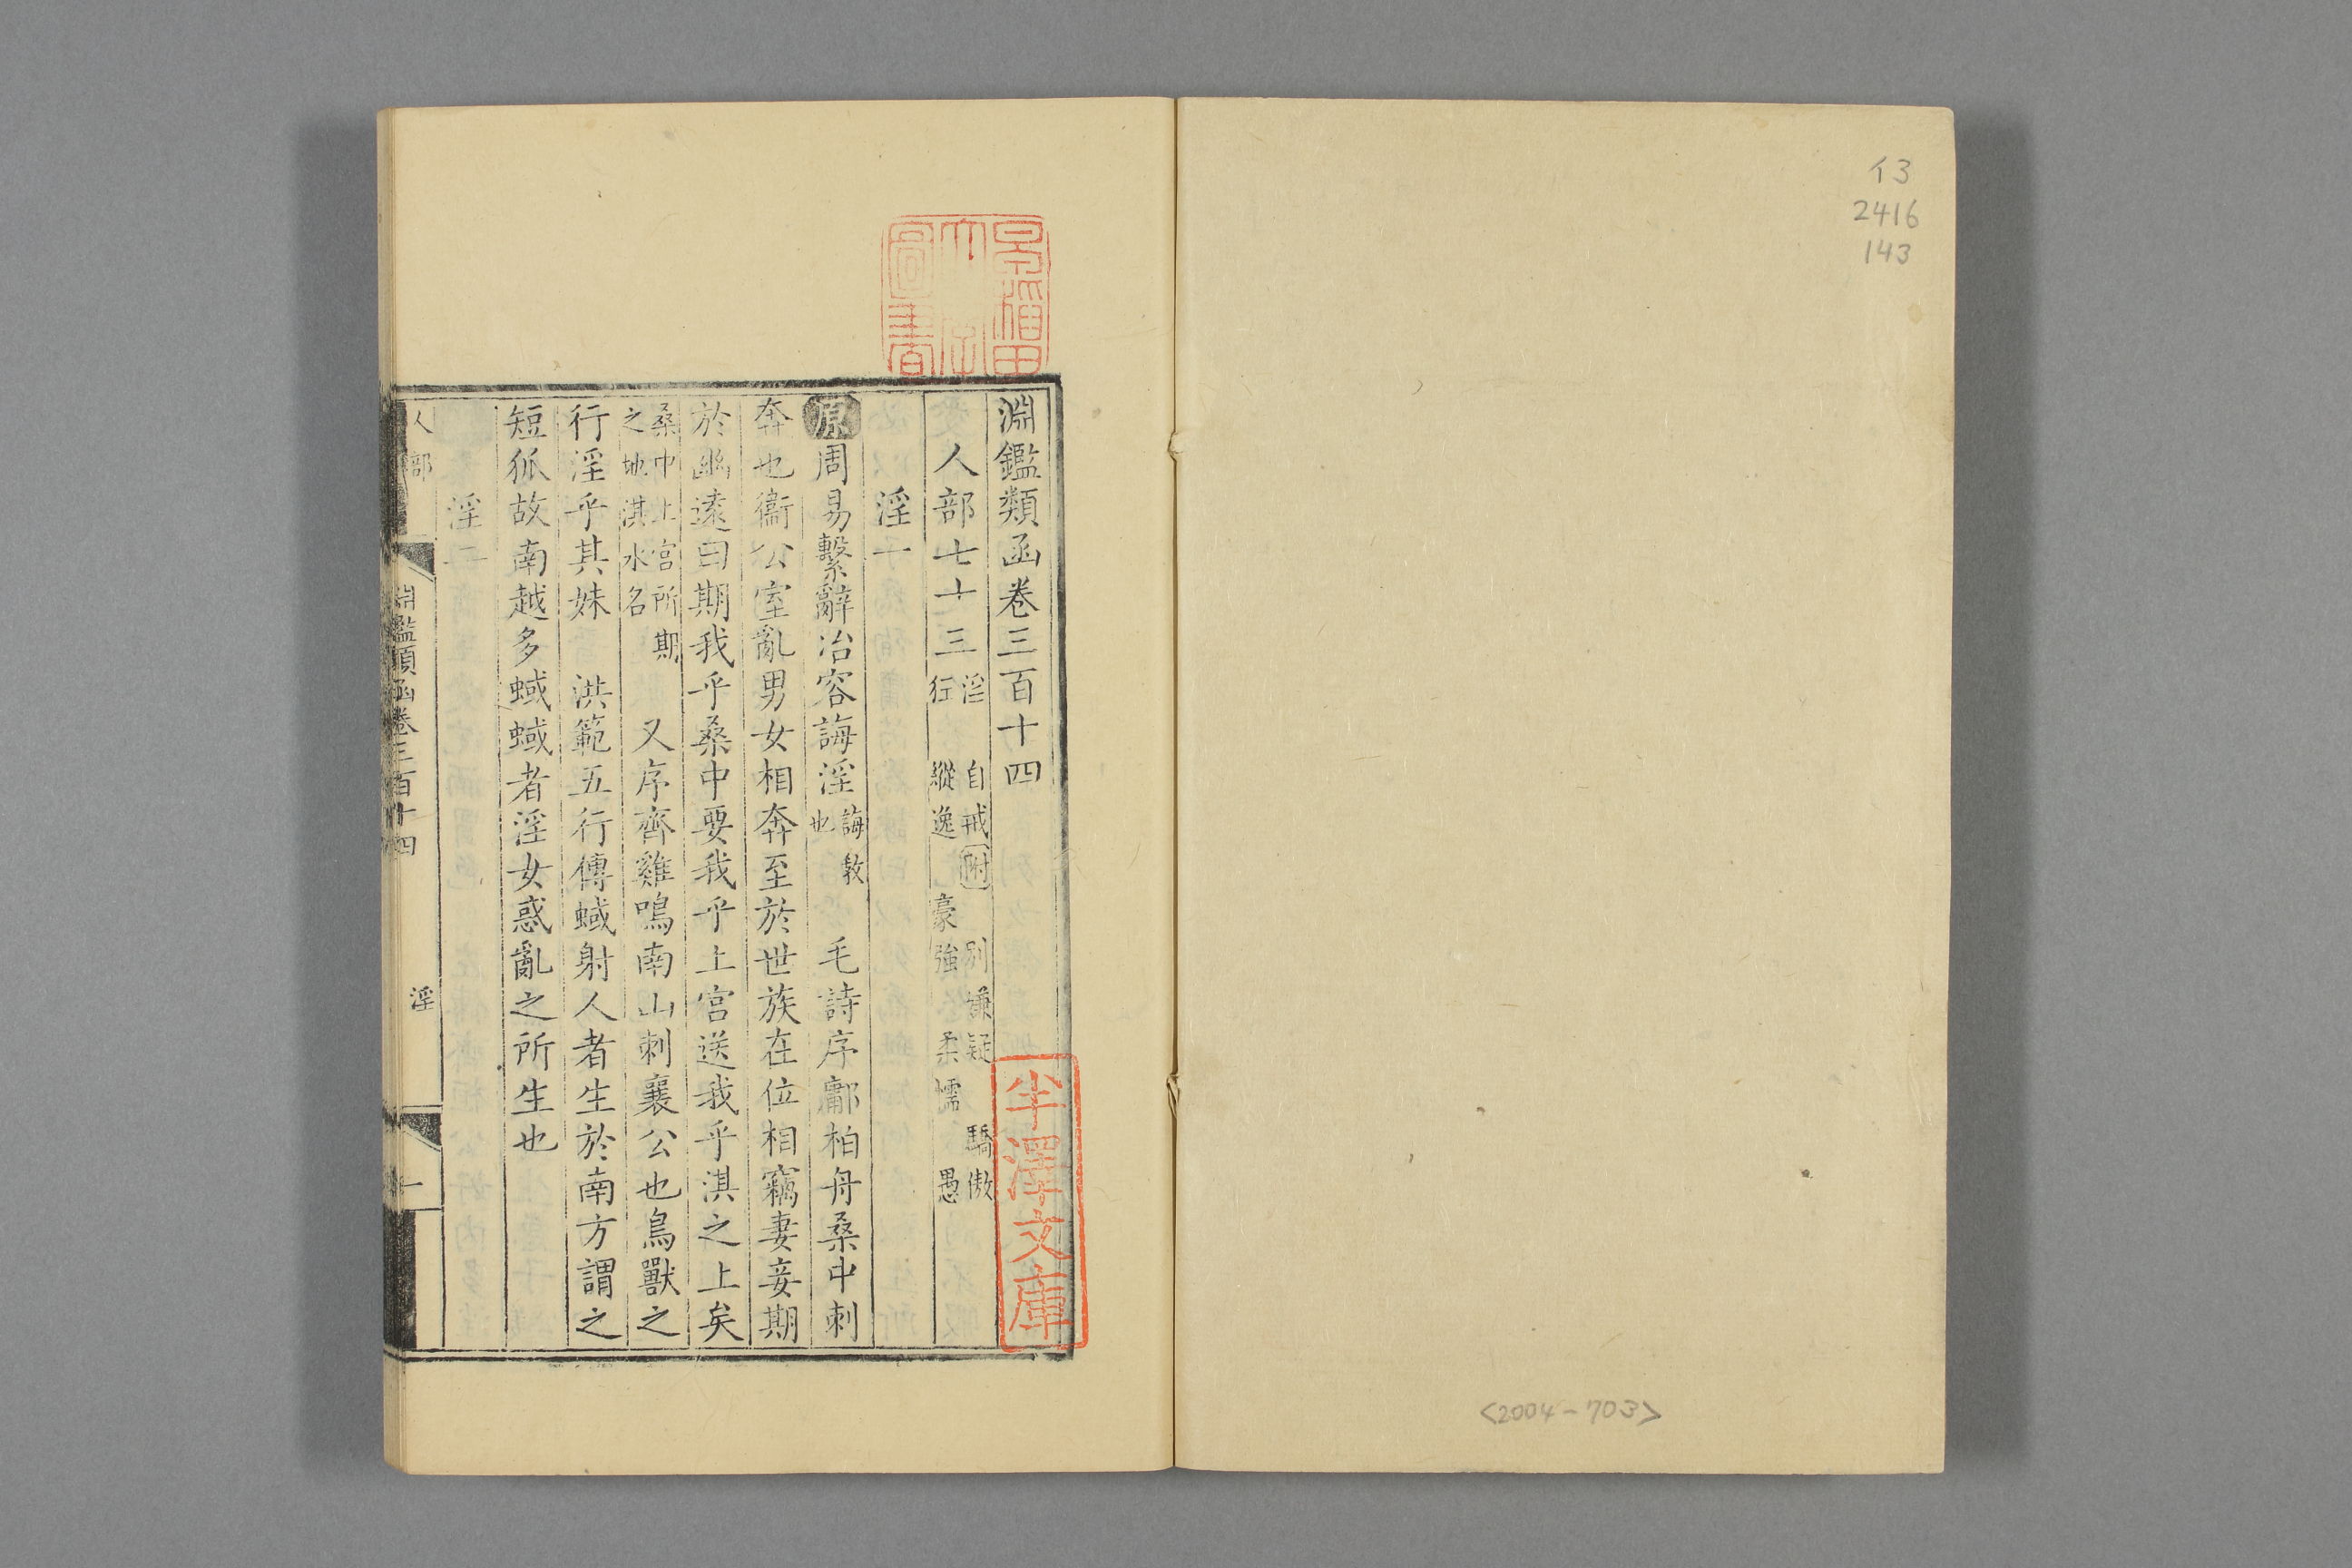 イ3
2416
143
<2004-703>
淵鑑類函卷三百十四
人部七十三 淫 自戒 附 別嫌疑 驕傲
狂 縱逸 豪強 柔懦 愚
淫一
原周易繫辭冶容誨淫 誨教也 毛詩序鄘柏舟桑中刺
奔也衞公室亂男女相奔至於世族在位相竊妻妾期
於幽遠曰期我乎桑中要我乎上宮送我乎淇之上矣
桑中上宮所期之地淇水名 又序齊雞鳴南山刺襄公也鳥獸之
行淫乎其妹 洪範五行傳蜮射人者生於南方謂之
短狐故南越多蜮蜮者淫女惑亂之所生也
淫二
人部 淵鑑類函卷三百十四 淫 一
半澤文庫
早稲田
大学
圖書